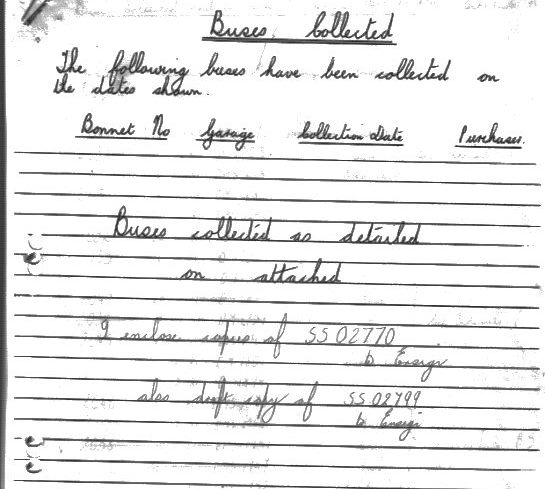 Buses Collected
The following buses have been collected on
the dates shown.
Bonnet No Garage Collection Date Purchaser.
Buses collected as detailed
on attached
I enclose copies of SS 02770
to Ensign
also draft copy of SS 02799
to Ensign